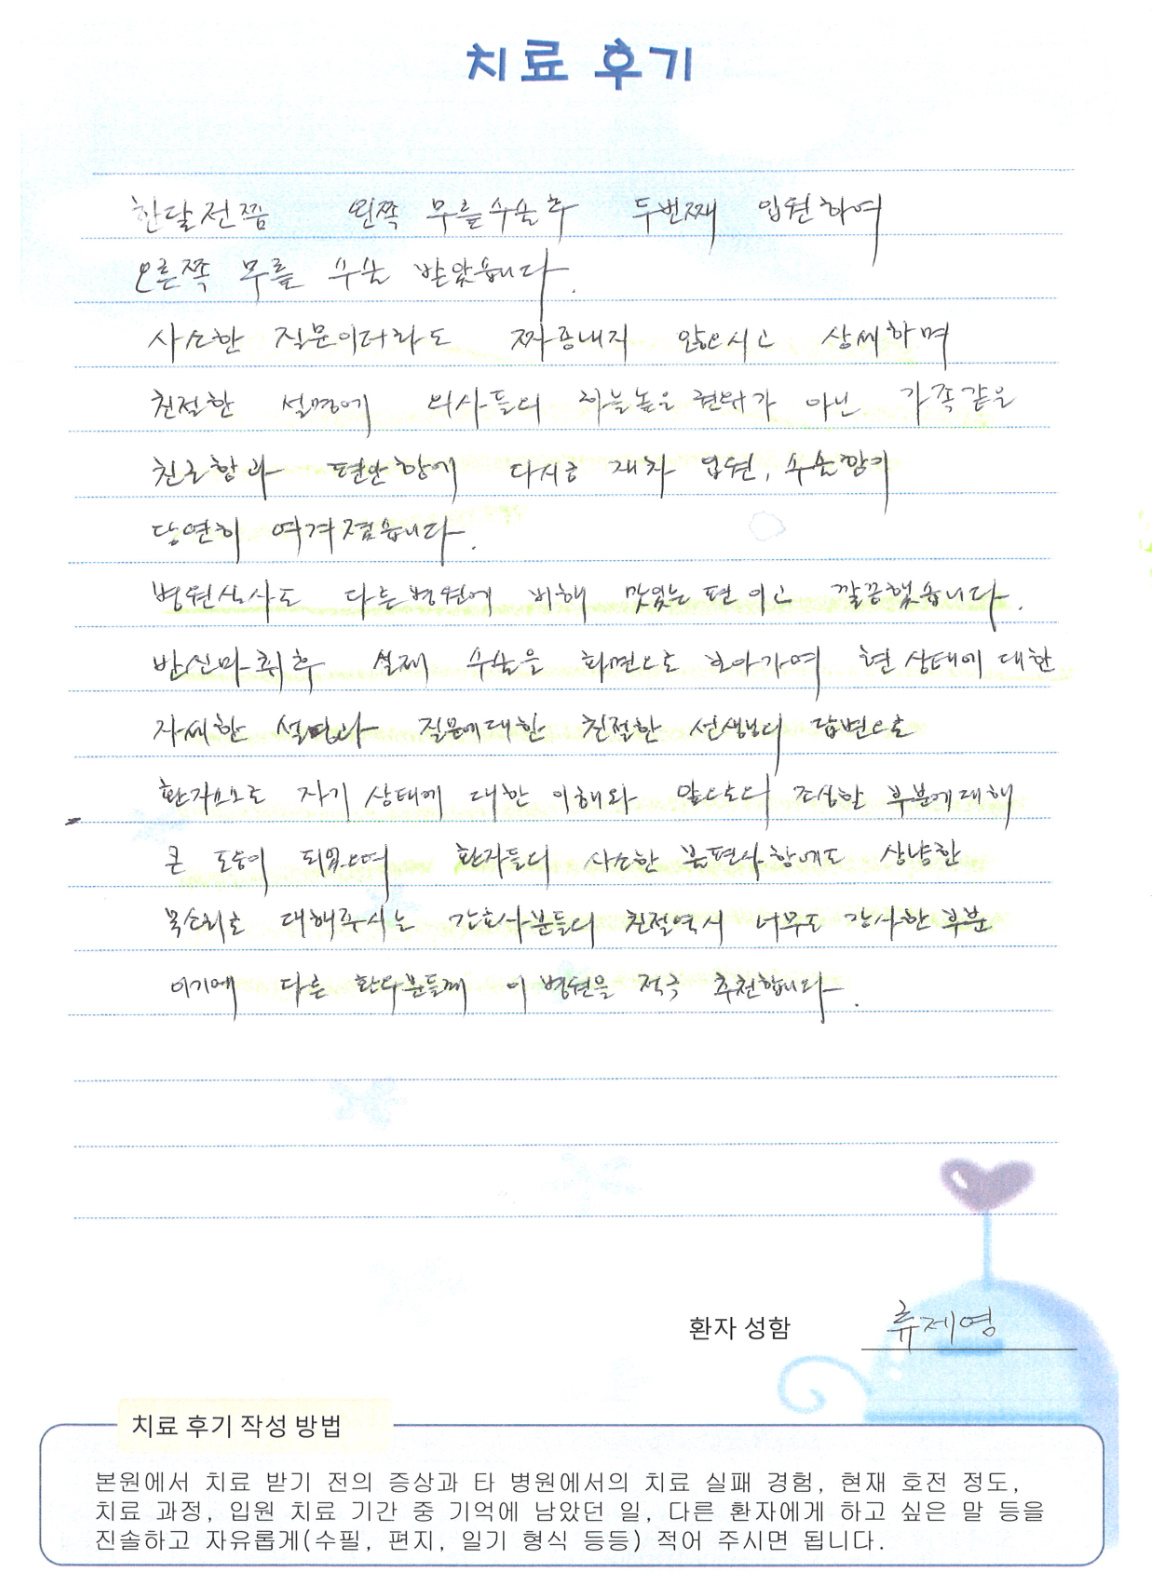 치료 후기
한달전쯤 왼쪽 무릎수술후 두번째 입원하여
오른쪽 무릎 수술 받았습니다.
사소한 질문이더라도 짜증내지 않으시고 상세하며
친절한 설명에 의사들의 하늘높은 권위가 아닌 가족같은
친근함과 편안함에 다시금 재차 입원, 수술함이
당연히 여겨졌습니다.
병원식사도 다른병원에 비해 맛있는 편이고 깔끔했습니다.
반신마취후 실제 수술을 화면으로 보아가며 현 상태에 대한
자세한 설명과 질문에대한 친절한 선생님의 답변으로
환자으로 자기 상태에 대한 이해와 앞으로의 조심할 부분에대해
큰 도움이 되었으며 환자들의 사소한 불편사항에도 상냥한
목소리로 대해주시는 간호사분들의 친절역시 너무도 감사한 부분
이기에 다른 환우분들께 이 병원을 적극 추천합니다.
환자 성함 류제영
치료 후기 작성 방법
본원에서 치료 받기 전의 증상과 타 병원에서의 치료 실패 경험, 현재 호전 정도,
치료 과정, 입원 치료 기간 중 기억에 남았던 일, 다른 환자에게 하고 싶은 말 등을
진솔하고 자유롭게(수필, 편지, 일기 형식 등등) 적어 주시면 됩니다.